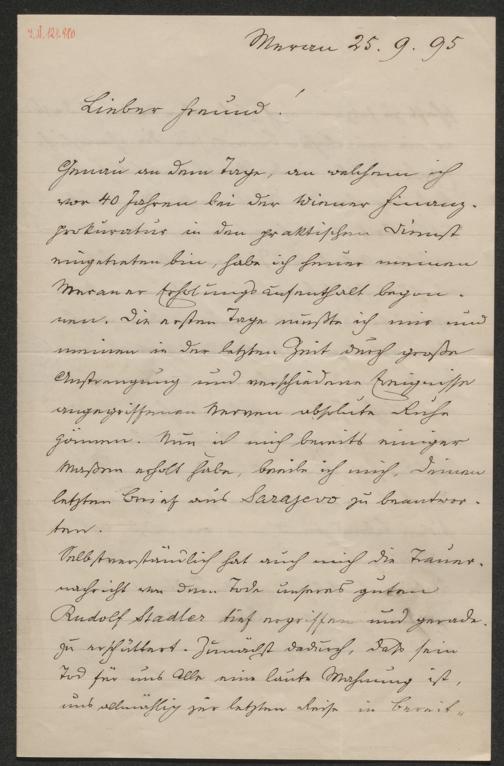 Meran 25. 9. 95
Lieber Freund!
Genau an dem Tage, an welchem ich
vor 40 Jahren bei der Wiener Finanz-
prokuratur in den praktischen Dienst
eingetreten bin, habe ich heuer meinen
Meraner Erholungsaufenthalt begon-
nen. Die ersten Tage mußte ich mir und
meinen in der letzten Zeit durch große
Anstrengung und verschiedene Ereignisse
angegriffenen Nerven absolute Ruhe
gönnen. Nun ich mich bereits einiger
Maßen erholt habe, beeile ich mich, Deinen
letzten Brief aus Sarajevo zu beantwor-
ten.
Selbstverständlich hat auch mich die Trauer-
nachricht von dem Tode unseres guten
Rudolf Stadler tief ergriffen und gerade-
zu erschüttert. Zunächst dadurch, daß sein
Tod für uns Alle eine laute Mahnung ist,
uns allmählig zur letzten Reise in Bereit-